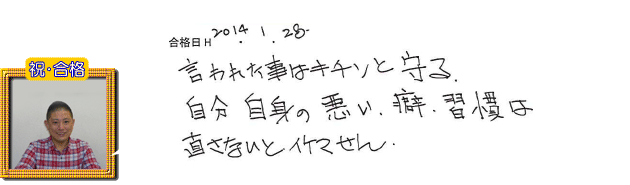 祝・合格
合格日 H 2014.1.28-
言われた事はキチンと守る.
自分自身の悪い.癖.習慣は
直さないとイケマせん.